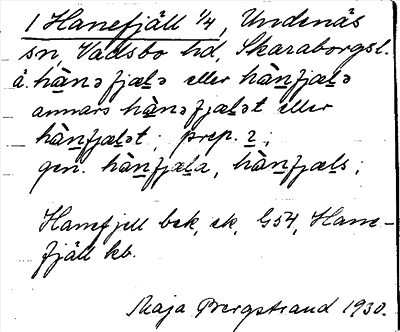 1 Hanefjäll 1/4, Undenäs
sn, Vadsbo hd, Skaraborgsl.
å. hànəfjælə eller hànfjælə
annars hànəfjælət eller
hànfjælət; prep. 2;
gen. hànfjæla, hànfjæls;
Hanefjell bek, ek, G54, Hane-
fjäll kb.
Maja Bergstrand 1930.